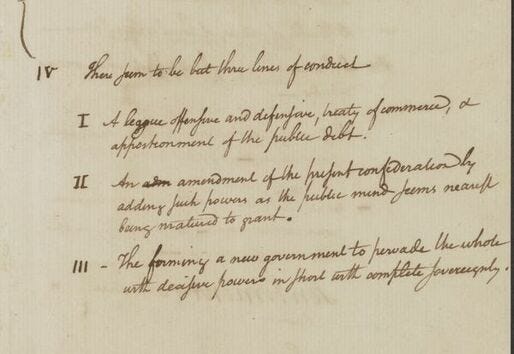 IV There seem to be but three lines of conduct
I A league offensive and defensive, treaty of commerce, &
apportionment of the public debt.
II An adm amendment of the present confederation by
adding such powers as the public mind seems nearest
being matured to grant.
III - The forming a new government to pervade the whole
with decisive powers in short with complete sovereignty.